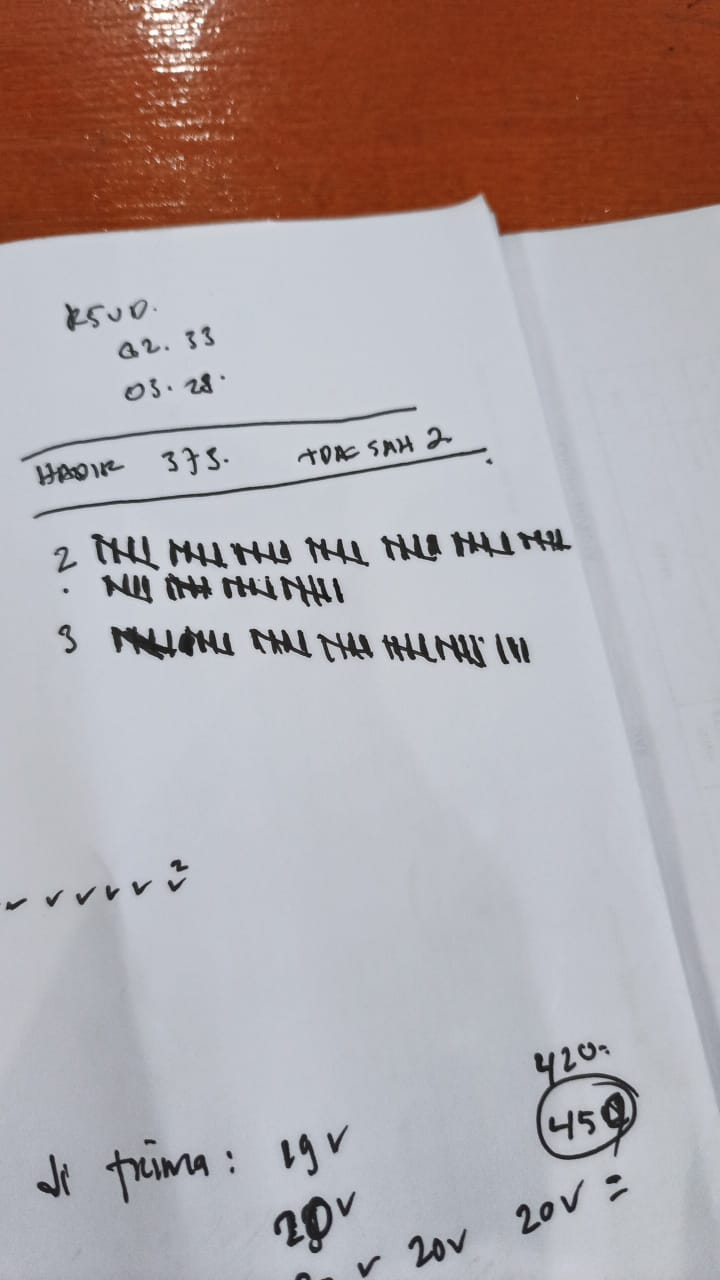 RSUD.
02. 33
03. 28.
HADIR 375. TDAK SAH 2
2
3
2
420
di trima : 19 v
20 v
v 20v 20v =